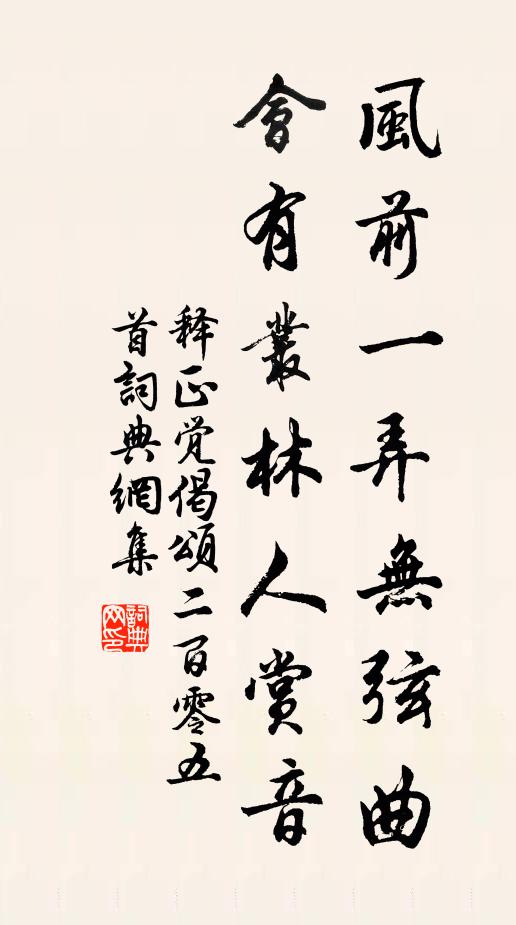 風前一弄無弦曲
會有叢林人賞音
释正觉偈頌二百零五
首詞典網集
詞典
网印